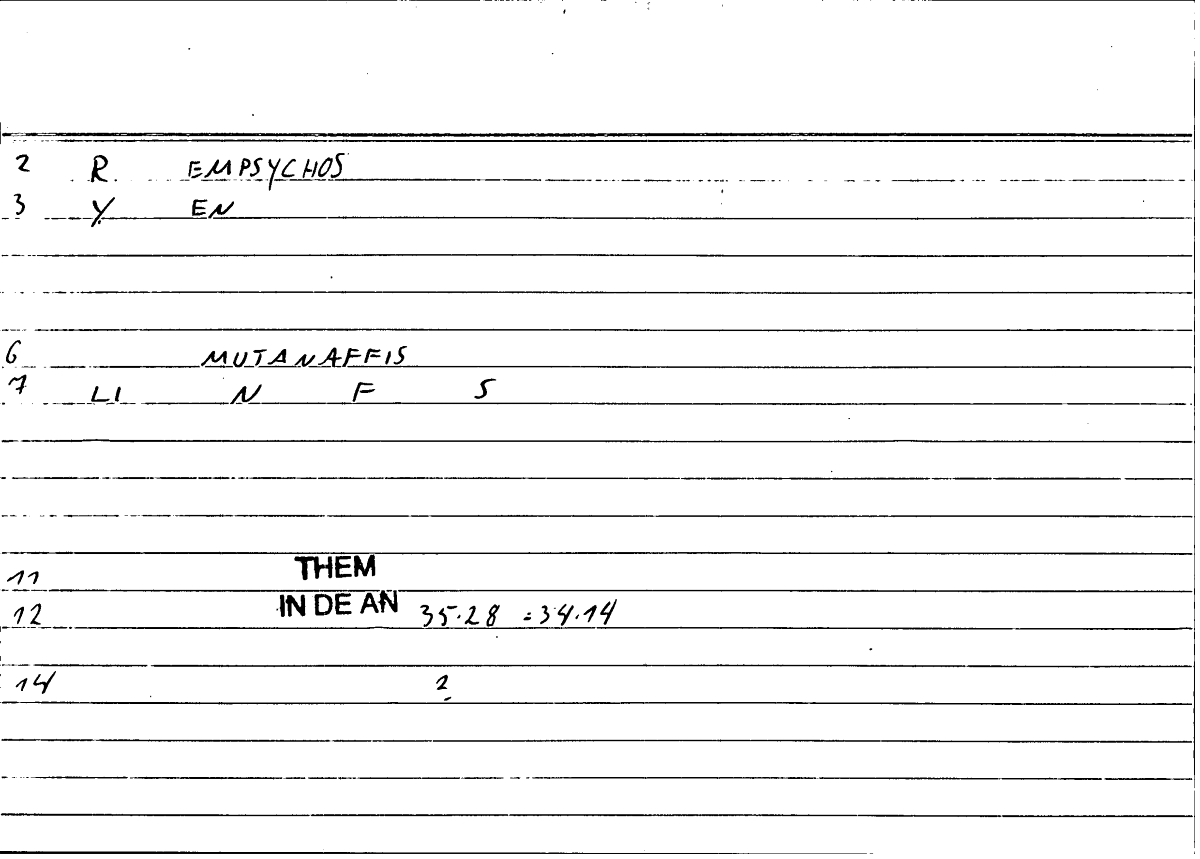 2 R. EMPSYCHOS
3 Y EN
6 MUTANAFFIS
7 LI N F S
11 THEM
12 IN DE AN 35.28 = 34.14
14 2